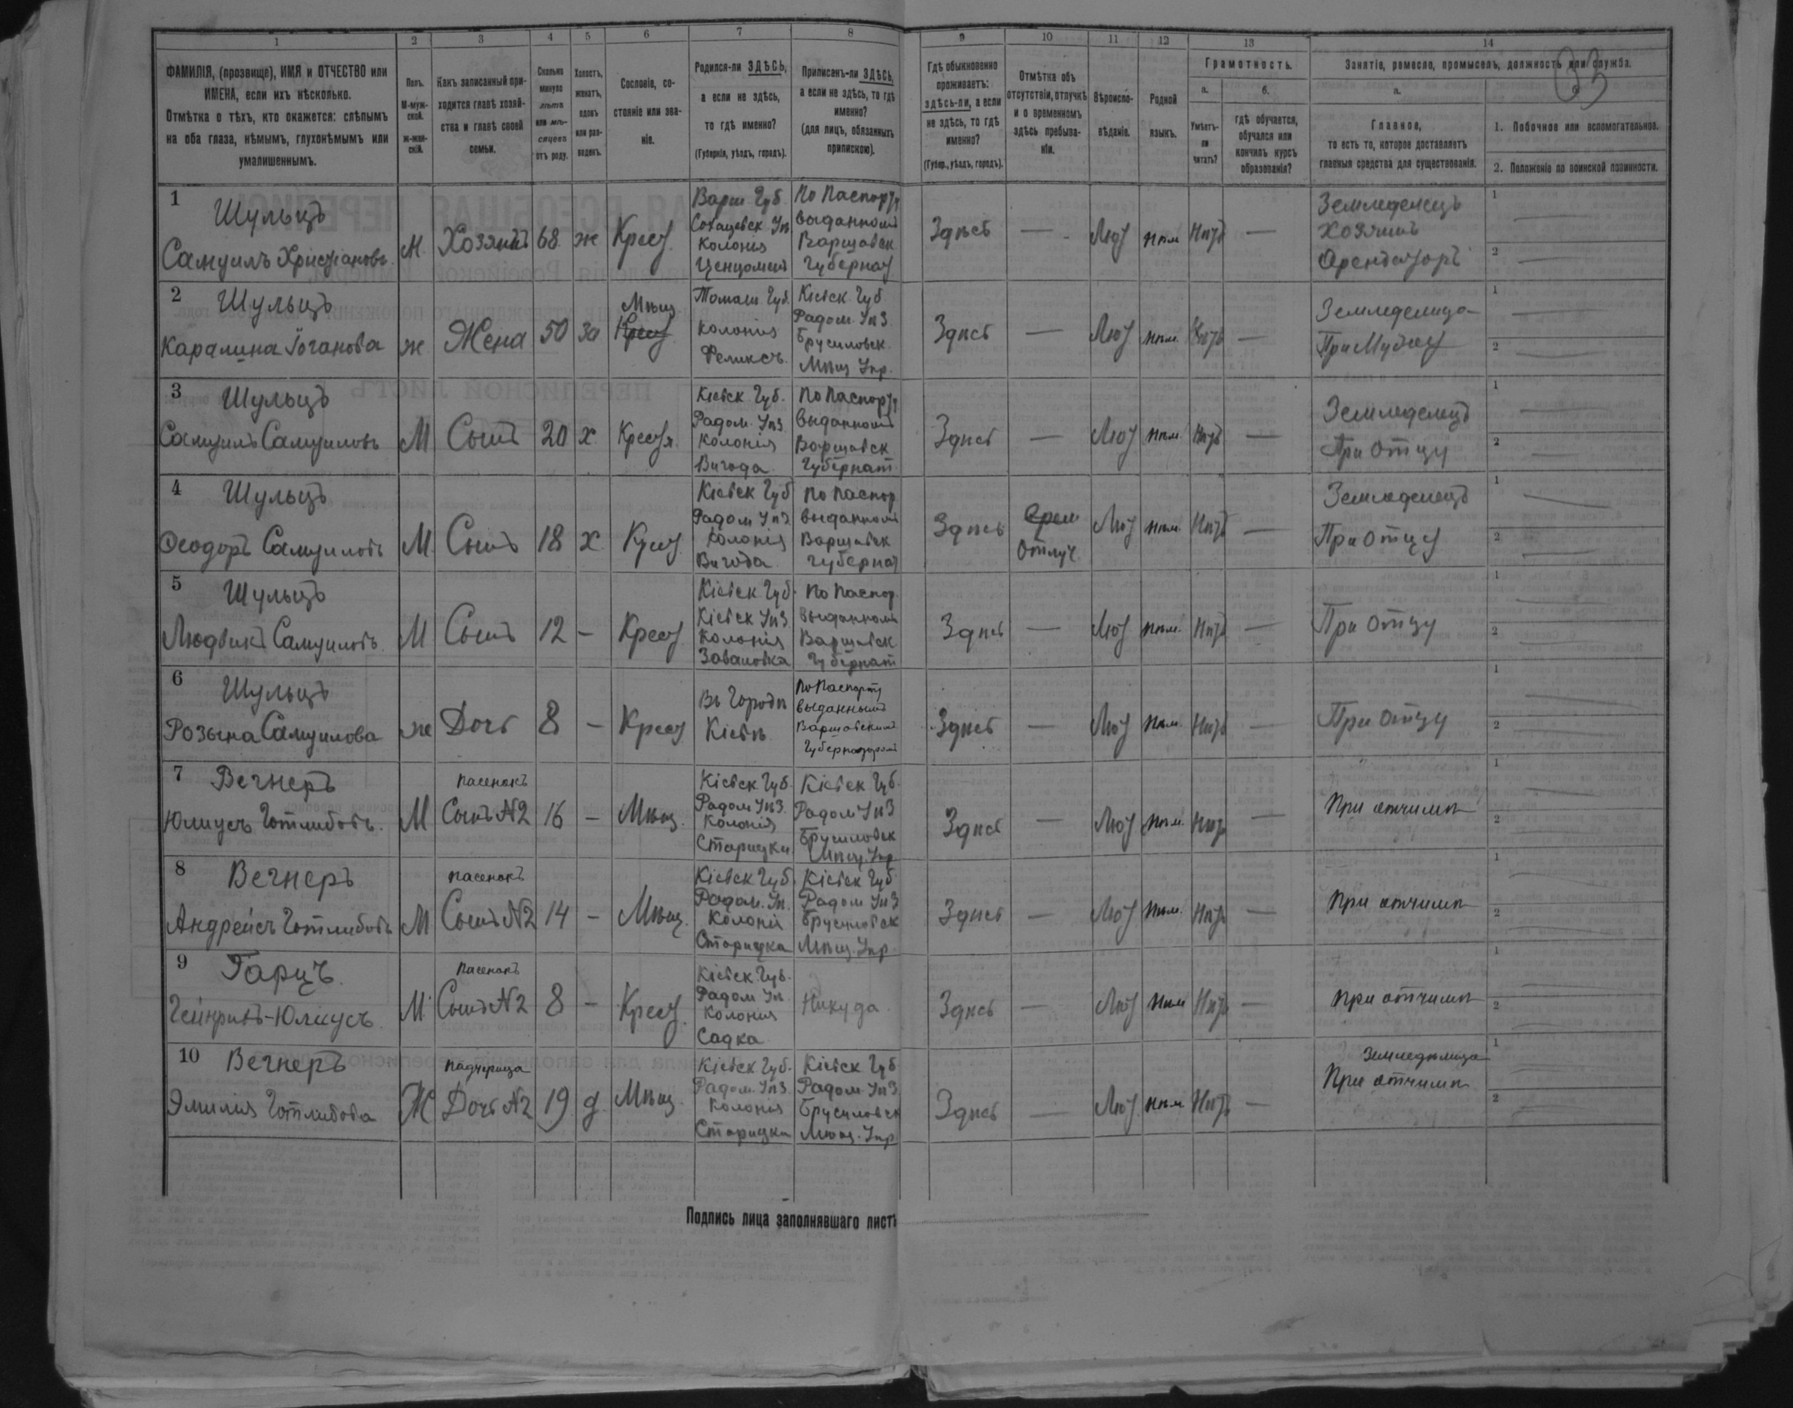 1 2 3 4 5 6 7 8 9 10 11 12 13 14
ФАМИЛІЯ, (прозвище), ИМЯ и ОТЧЕСТВО или
ИМЕНА, если ихъ нѣсколько.
Отмѣтка о тѣхъ, кто окажется: слѣпымъ
на оба глаза, нѣмымъ, глухонѣмымъ или
умалишеннымъ.
Полъ.
М-муж-
ской.
ж-жен-
скій.
Какъ записанный при-
ходится главѣ хозяй-
ства и главѣ своей
семьи.
Сколько
минуло
лѣтъ
или мѣ-
сяцевъ
отъ роду.
Холостъ,
женатъ,
вдовъ
или раз-
веденъ.
Сословіе, со-
стояніе или зва-
ніе.
Родился-ли ЗДѢСЬ,
а если не здѣсь,
то гдѣ именно?
(Губернія, уѣздъ, городъ).
Приписанъ-ли ЗДѢСЬ,
а если не здѣсь, то гдѣ
именно?
(для лицъ, обязанныхъ
припискою).
Гдѣ обыкновенно
проживаетъ:
здѣсь-ли, а если
не здѣсь, то гдѣ
именно?
(Губер., уѣздъ, городъ).
Отмѣтка объ
отсутствіи, отлучкѣ
и о временномъ
здѣсь пребыва-
ніи.
Вѣроиспо-
вѣданіе.
Родной
языкъ.
Грамотность.
а.
Умѣетъ-
ли
читать?
б.
гдѣ обучается,
обучался или
кончилъ курсъ
образованія?
Занятіе, ремесло, промыселъ, должность или служба.
а.
Главное,
то есть то, которое доставляетъ
главныя средства для существованія.
1. Побочное или вспомогательное.
2. Положеніе по воинской повинности.
1
Шульцъ
Самуилъ Христіановъ
м
Хозяинъ
68
ж
Крест
Варш Губ
Сохачевск Уѣз
Колонія
По Паспорту
выданномъ
Варшавск
Губернат
Здѣсь
—
Лют
нѣм
Нѣтъ
—
Земледелецъ
Хозяинъ
Арендаторъ
1
2
2
Шульцъ
Каралина Іоганова
ж
Жена
50
за
Мѣщ
Крест
Губ.
колонія
Феликсъ
Кіевск Губ
Радом. Уѣз.
Брусиловск.
Мѣщ Упр.
Здѣсь
—
Лют
нѣм.
Нѣтъ
—
При Мужу
1
2
3
Шульцъ
Самуилъ Самуиловъ
М
Сынъ
20
х
Крест
Кіевск Губ.
Радом. Уѣз
Колонія
Вигода
По Паспорту
выданномъ
Варшавск
Губернат
Здѣсь
—
Лют
нѣм.
Нѣтъ
—
Земледелецъ
При Отцу
1
2
4
Шульцъ
Ѳеодоръ Самуиловъ
М
Сынъ
18
х
Крест
Кіевск Губ
Радом Уѣз
Колонія
Вигода
По Паспор
выданномъ
Варшавск
Губернат
Здѣсь
Врем
Отлуч.
Лют
нѣм.
Нѣтъ
—
Земледелецъ
При Отцу
1
2
5
Шульцъ
Людвикъ Самуиловъ
М
Сынъ
12
—
Крест
Кіевск Губ.
Кіевск Уѣз
Колонія
По Паспор
выданномъ
Варшавск
Губернат
Здѣсь
—
Лют
нѣм.
Нѣтъ
—
При Отцу
1
2
6
Шульцъ
Розына Самуилова
ж
Дочь
8
—
Крест
Въ Городѣ
Кіевѣ
По Паспорту
выданный
Варшавскимъ
Здѣсь
—
Лют
нѣм.
Нѣтъ
—
При Отцу
1
2
7
Вегнеръ
Юлиусъ Готлибовъ.
М
пасенокъ
Сынъ №2
16
—
Мѣщ.
Кіевск Губ.
Радом Уѣз.
Колонія
Старицка
Кіевск Губ.
Радом Уѣз
Брусиловск
Мѣщ. Упр
Здѣсь
—
Лют
нѣм.
Нѣтъ
—
При отчимѣ
1
2
8
Вегнеръ
Андрейсъ Готлибовъ
М
пасенокъ
Сынъ №2
14
—
Мѣщ.
Кіевск Губ.
Радом. Уѣ.
Колонія
Старицка
Кіевск Губ
Радом Уѣз
Брусиловск
Мѣщ. Упр
Здѣсь
—
Лют
нѣм.
Нѣтъ
—
При отчимѣ
1
2
9
Гарцъ.
Гейнрихъ-Юлиусъ
М
пасенокъ
Сынъ №2
8
—
Крест
Кіевск Губ.
Радом Уѣ
Колонія
Садка
Никуда
Здѣсь
—
Лют
нѣм
Нѣтъ
—
при отчимѣ
1
2
10
Вегнеръ
Эмилія Готлибова
Ж
падчерица
Дочь №2
19
д.
Мѣщ.
Кіевск Губ.
Радом. Уѣз.
Колонія
Старицка
Кіевск Губ
Радом. Уѣз
Брусиловск
Мѣщ. Упр
Здѣсь
—
Лют
нѣм
Нѣтъ
—
Земледѣлица
При отчимѣ
1
2
Подпись лица заполнявшаго листъ